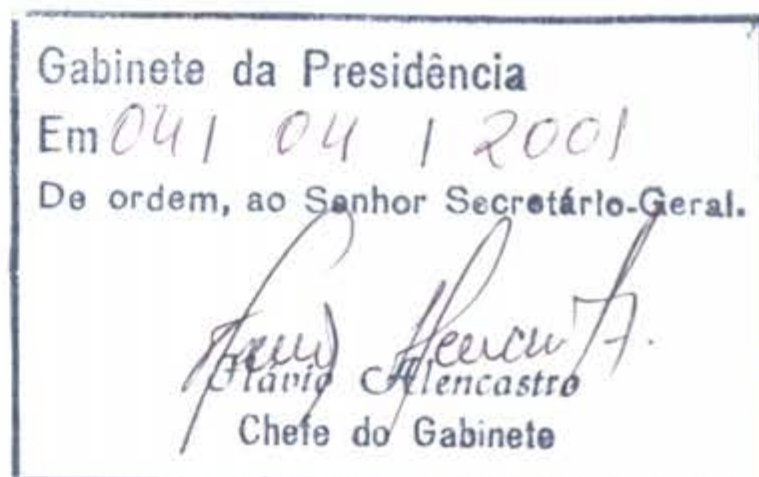 Gabinete da Presidência
Em 04 / 04 / 2001
De ordem, ao Senhor Secretário-Geral.
Flávio Alencastro
Chefe do Gabinete